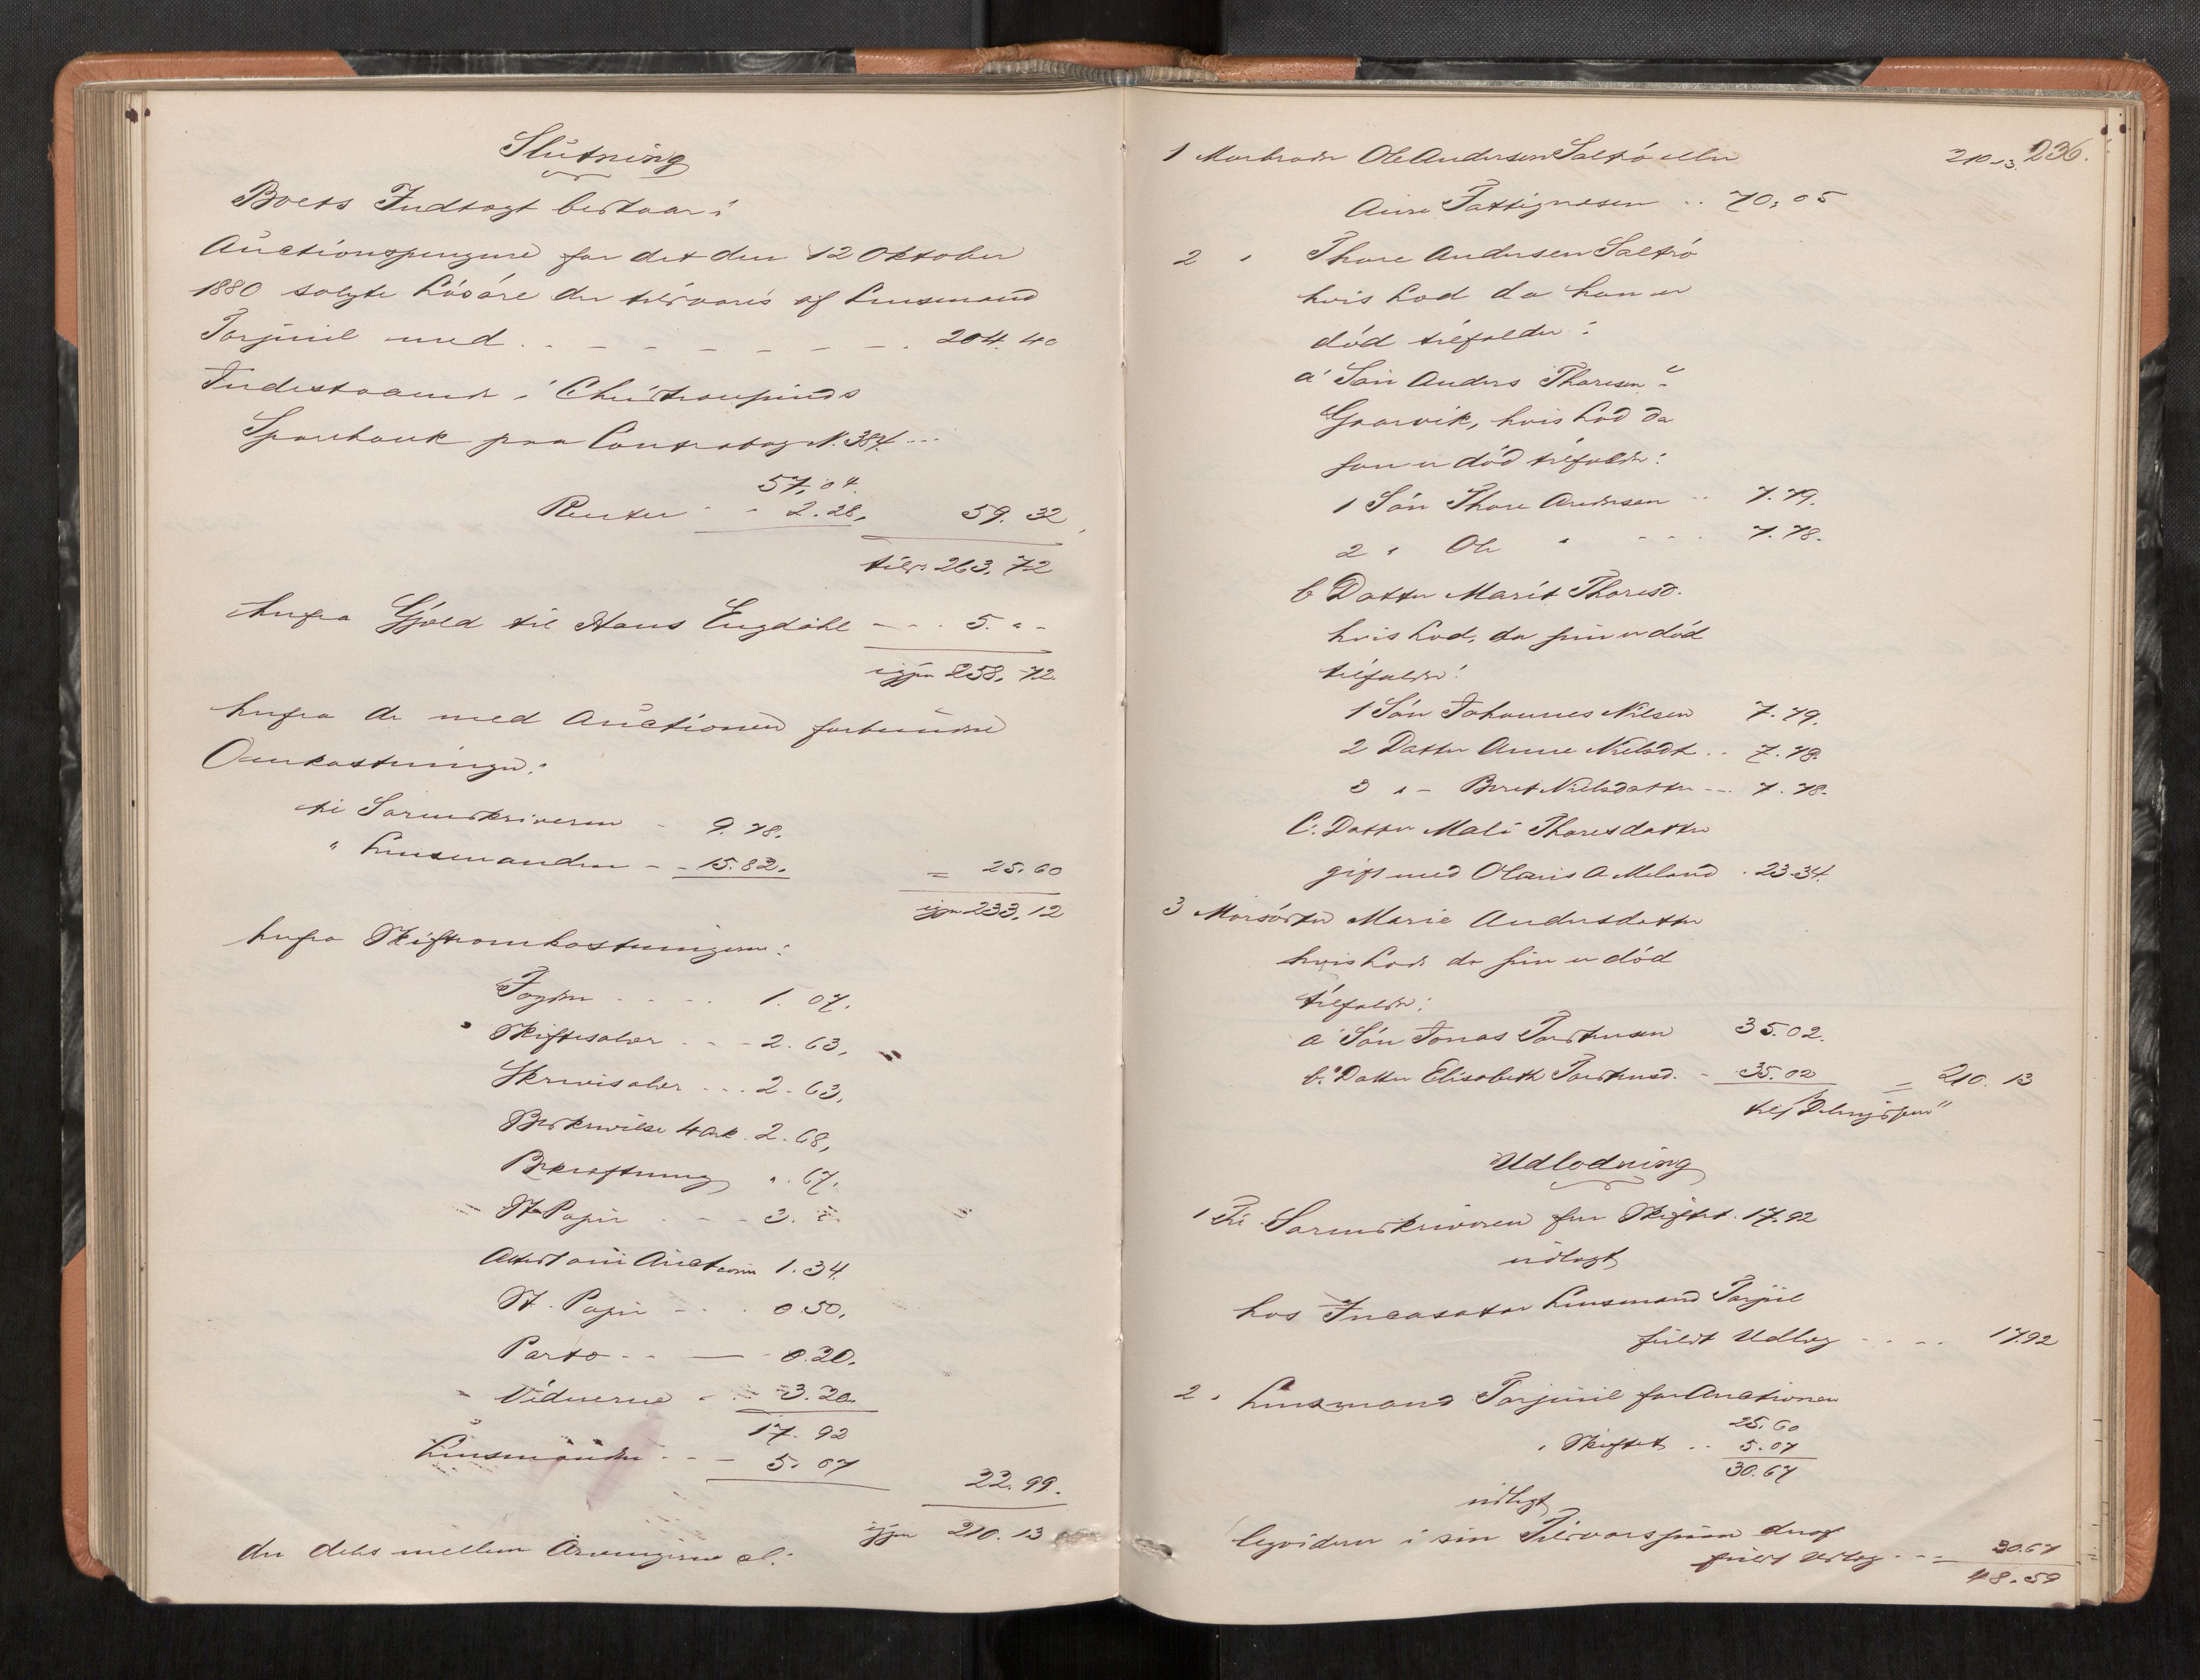 Slutning
Boets Indtægt bestaar i
Auctionspengene for det den 12 Oktober
1880 solgte Løsøre der tilsvares af Lensmand
Torjuul med . . – – – – – – . 204. 40
Indestaaende i Christiansunds
Sparebank paa Contrabog N. 384 ...
57,04.
Renter - - 2.28, 59. 32
tils. 263. 72
herfra Gjæld til Hans Engdahl – – . 5. " -
igjen 258. 72.
herfra de med Auctionen forbundne
Omkostninger:
til Sorenskriveren - 9.78.
" Lensmanden - - 15.82. = 25.60
igjen 233.12
herfra Skifteomkostningerne:
Fogden - - - - 1. 07.
Skiftesalær . - - 2. 63,
Skriversalær ... 2. 63,
Beskrivelse 4 Ark. 2. 68,
Bekræftning ". 67.
St. Papir . - - 3. "
Attest om Auctionen 1.34.
St. Papir - . . 0.50,
Porto - - — - 0.20.
Vidnerne - . - 3.20.
17. 92
Lensmanden . - - 5. 07 22.99.
igjen 210.13
der deles mellem Arvingerne sl:
236.
1 Morbroder Ole Andersen Saltrö eller 210.13.
hvis Lod da han er
2 " Thore Andersen Saltrö
död tilfalder:
a Søn Anders Thoresen
hvis Lod da
han er död tilfalder:
1 Sön Thore Andersen .. 7.79.
2 " Ole " - - - . 7.78.
b Datter Marit Thoresd.
hvis Lod, da hun er död
tilfalder:
1 Sön Johannes Nilsen 7.79.
2 Datter Anne Nielsdt .. 7.78.
3 " - Beret Nielsdatter --- 7.78.
C. Datter Mali Thoresdatter
gift med Olaus A Meland . 23.34.
3 Morsöster Marie Andersdatter
hvis Lod da hun er död
tilfalder:
a Sön Jonas 35.02.
b. Datter Elisabeth - 35.02 = 210. 13
Udlodning
1 Til Sorenskriveren for Skiftet. 17.92
udlagt
hos Incasator Lensmand Torjuul
fuldt Udlæg - - - . 17.92
2 " Lensmand Torjuul for Auctionen
25.60
" Skiftet .. 5.07
30.67
udlagt
liqvideres i sin Tilsvarssum deraf
fuldt Udlæg - - = 30.67
48.59